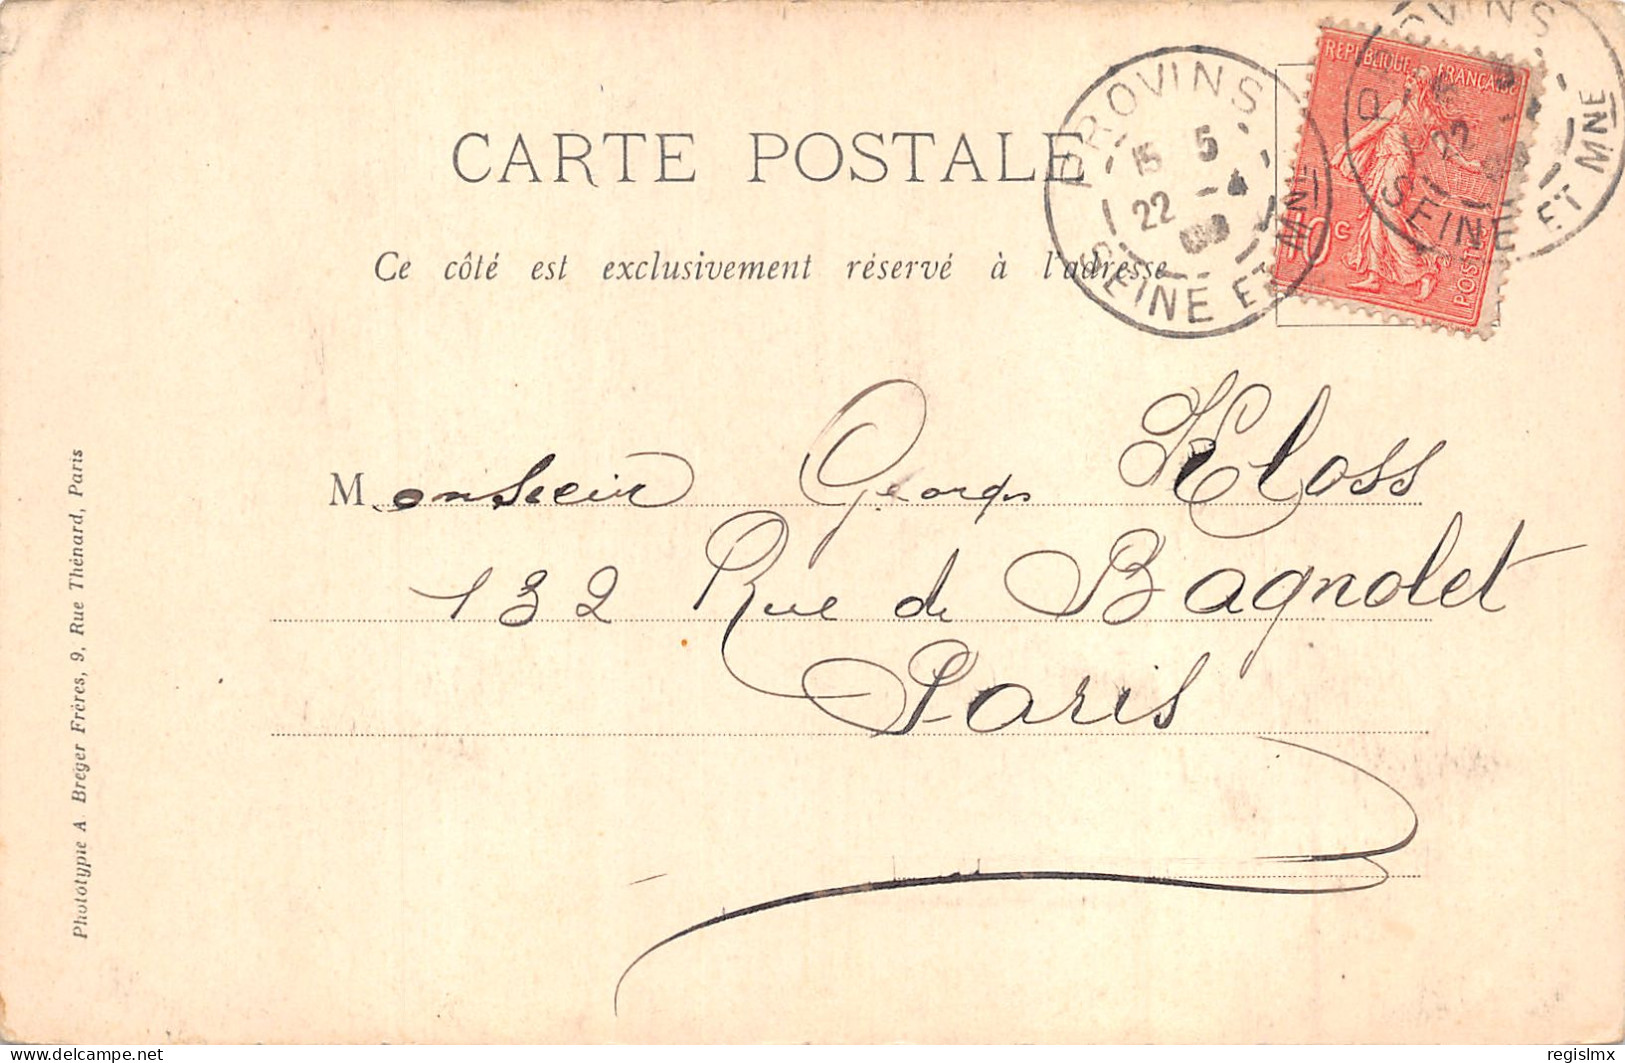 CARTE POSTALE
Ce côté est exclusivement réservé à l'adresse
PROVINS
15 5
22 -4
SEINE ET MNE
REPUBLIQUE FRANÇAISE
10 c
POSTES
PROVINS
22
SEINE ET MNE
Monsieur Georges Kloss
132 Rue de Bagnolet
Paris
Phototypie A Breger Frères, 9, Rue Thénard, Paris
delcampe.net
regislmx